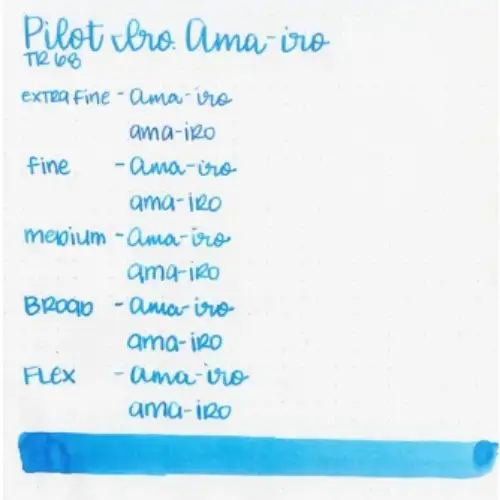 Pilot Iro. Ama-iro
TR 68
extra fine - Ama-iro
ama-iro
fine - Ama-iro
ama-iro
medium - Ama-iro
ama-iro
Broad - Ama-iro
ama-iro
Flex - Ama-iro
ama-iro